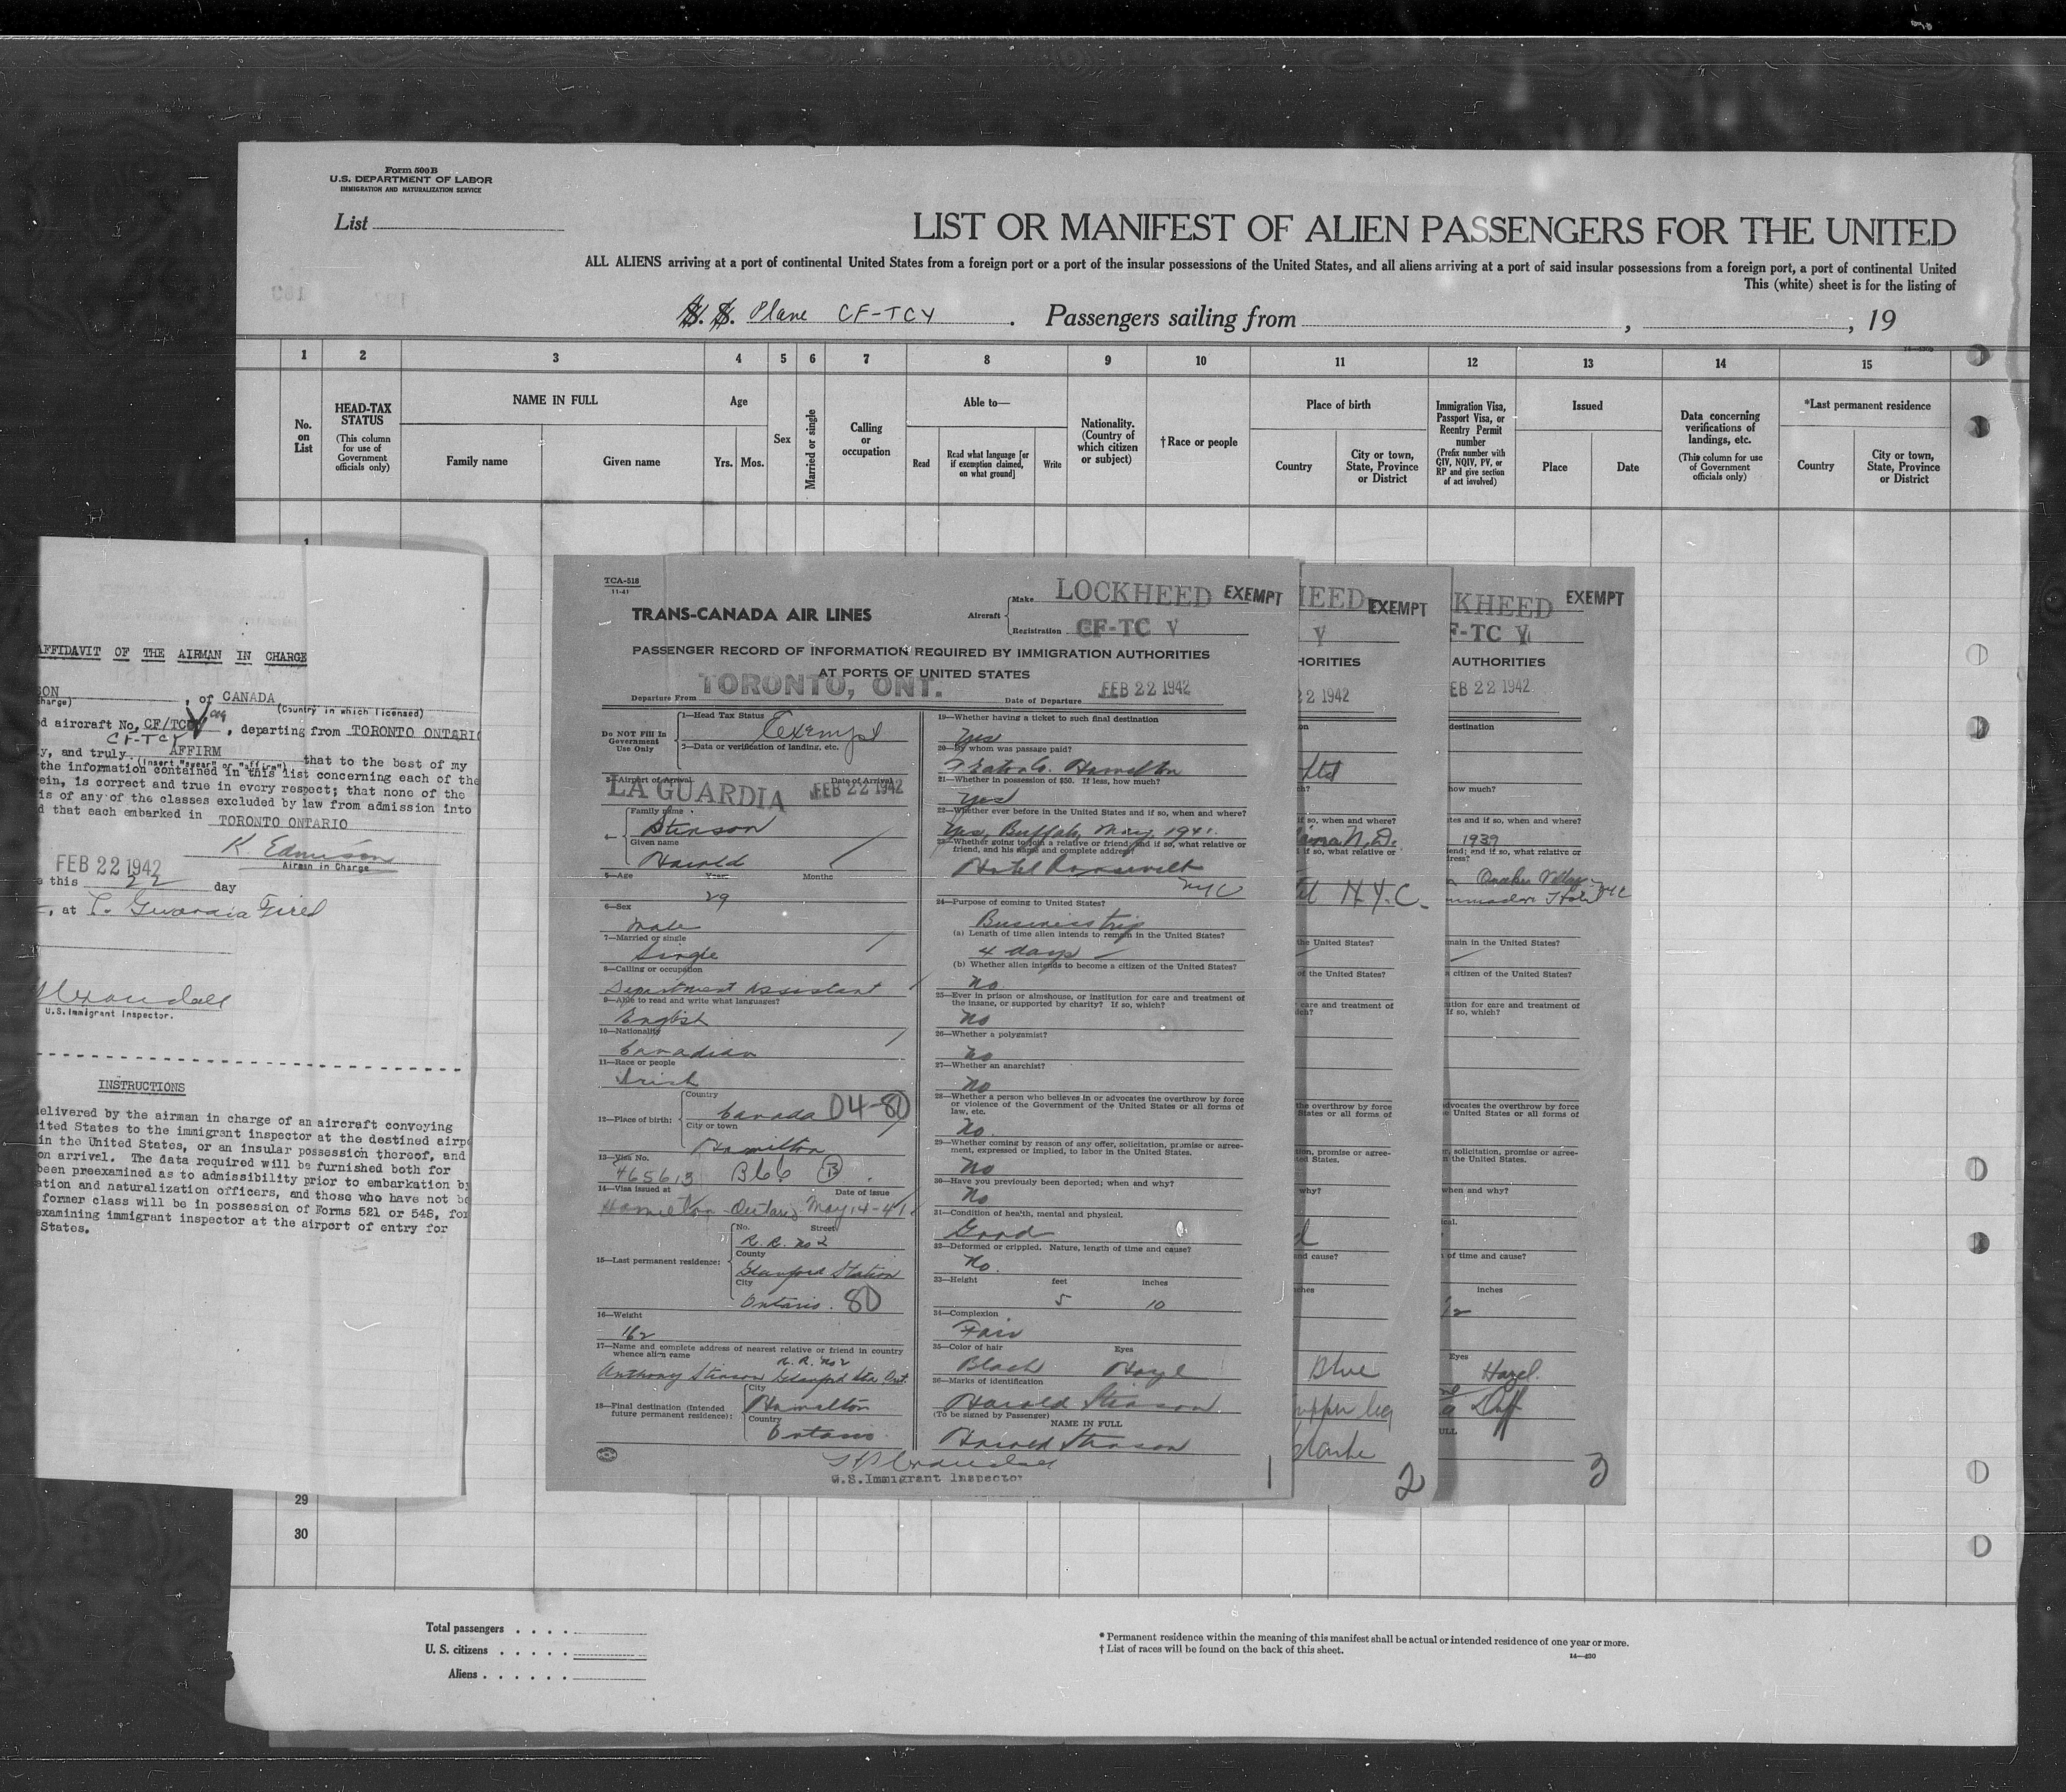 Form 500B
U.S. DEPARTMENT OF LABOR
IMMIGRATION AND NATURALIZATION SERVICE
List
LIST OR MANIFEST OF ALIEN PASSENGERS FOR THE UNITED
ALL ALIENS arriving at a port of continental United States from a foreign port or a port of the insular possessions of the United States, and all aliens arriving at a port of said insular possessions from a foreign port, a port of continental United
This (white) sheet is for the listing of
S. S. Plane CF-TCY . Passengers sailing from , , 19
1 2 3 4 5 6 7 8 9 10 11 12 13 14 15
No. on List
HEAD-TAX STATUS
(This column for use of Government officials only)
NAME IN FULL
Family name Given name
Age
Yrs. Mos.
Sex
Married or single
Calling or occupation
Able to—
Read
Read what language [or if exemption claimed, on what ground]
Write
Nationality. (Country of which citizen or subject)
†Race or people
Place of birth
Country
City or town, State, Province or District
Immigration Visa, Passport Visa, or Reentry Permit number
(Prefix number with GIV, NQIV, PV, or RP and give section of act involved)
Issued
Place Date
Data concerning verifications of landings, etc.
(This column for use of Government officials only)
*Last permanent residence
Country
City or town, State, Province or District
AFFIDAVIT OF THE AIRMAN IN CHARGE
SON , of CANADA
charge) (Country in which licensed)
d aircraft No. CF/TC , departing from TORONTO ONTARIO
CF-TCY
y, and truly AFFIRM that to the best of my
(insert "swear" or "affirm")
the information contained in this list concerning each of the
ein, is correct and true in every respect; that none of the
is of any of the classes excluded by law from admission into
d that each embarked in TORONTO ONTARIO
K. Edmison
Airman in Charge
FEB 22 1942
this 22 day
, at La Guardia Field
U.S. Immigrant Inspector.
INSTRUCTIONS
elivered by the airman in charge of an aircraft conveying
ited States to the immigrant inspector at the destined airpo
in the United States, or an insular possession thereof, and
on arrival. The data required will be furnished both for
been preexamined as to admissibility prior to embarkation by
ation and naturalization officers, and those who have not be
former class will be in possession of Forms 521 or 548, for
examining immigrant inspector at the airport of entry for
States.
TCA-518
11-41
TRANS-CANADA AIR LINES
Aircraft
Make LOCKHEED EXEMPT
Registration CF-TC V
PASSENGER RECORD OF INFORMATION REQUIRED BY IMMIGRATION AUTHORITIES
AT PORTS OF UNITED STATES
Departure From TORONTO, ONT. Date of Departure FEB 22 1942
Do NOT Fill In Government Use Only
1—Head Tax Status Exempt
2—Data or verification of landing, etc.
3—Airport of Arrival Date of Arrival
LA GUARDIA FEB 22 1942
4—
Family name
Stinson
Given name
Harold
5—Age Years Months
29
6—Sex
Male
7—Married or single
Single
8—Calling or occupation
Department Assistant
9—Able to read and write what languages?
English
10—Nationality
Canadian
11—Race or people
Irish
12—Place of birth:
Country
Canada 04-80
City or town
Hamilton
13—Visa No.
465613 B66 B
14—Visa issued at Date of issue
Hamilton - Ontario May 14-41
15—Last permanent residence:
No. Street
R. R. No 2
County
Glanford Station
City
Ontario. 80
16—Weight
162
17—Name and complete address of nearest relative or friend in country
whence alien came
R. R. No 2
Anthony Stinson Glanford Sta Ont.
18—Final destination (Intended
future permanent residence):
City
Hamilton
Country
Ontario
19—Whether having a ticket to such final destination
Yes
20—By whom was passage paid?
T. Eaton Co. Hamilton
21—Whether in possession of $50. If less, how much?
Yes
22—Whether ever before in the United States and if so, when and where?
Yes, Buffalo, May, 1941.
23—Whether going to join a relative or friend; and if so, what relative or
friend, and his name and complete address?
Hotel Roosevelt
NYC
24—Purpose of coming to United States?
Business trip
(a) Length of time alien intends to remain in the United States?
4 days
(b) Whether alien intends to become a citizen of the United States?
No
25—Ever in prison or almshouse, or institution for care and treatment of
the insane, or supported by charity? If so, which?
No
26—Whether a polygamist?
No
27—Whether an anarchist?
No
28—Whether a person who believes in or advocates the overthrow by force
or violence of the Government of the United States or all forms of
law, etc.
No.
29—Whether coming by reason of any offer, solicitation, promise or agree-
ment, expressed or implied, to labor in the United States.
No
30—Have you previously been deported; when and why?
No
31—Condition of health, mental and physical.
Good
32—Deformed or crippled. Nature, length of time and cause?
No.
33—Height feet inches
5 10
34—Complexion
Fair
35—Color of hair Eyes
Black Hazel
36—Marks of identification
Harold Stinson
(To be signed by Passenger)
NAME IN FULL
Harold Stinson
U.S. Immigrant Inspector
1
HEED EXEMPT
V
HORITIES
22 1942
on
Ltd
h?
if so, when and where?
N.D.
if so, what relative or
N.Y.C.
the United States?
of the United States?
care and treatment of
ich?
the overthrow by force
States or all forms of
tion, promise or agree-
ed States.
why?
d
and cause?
ches
Blue
upper leg
2
KHEED EXEMPT
F-TC V
AUTHORITIES
EB 22 1942
destination
how much?
tes and if so, when and where?
1939
end; and if so, what relative or
ress?
Hotel NYC
main in the United States?
a citizen of the United States?
tution for care and treatment of
If so, which?
advocates the overthrow by force
e United States or all forms of
er, solicitation, promise or agree-
n the United States.
when and why?
ical.
of time and cause?
inches
1/2
Eyes
Hazel.
Duff
ULL
3
29
30
Total passengers . . . .
U. S. citizens . . . . .
Aliens . . . . . .
* Permanent residence within the meaning of this manifest shall be actual or intended residence of one year or more.
† List of races will be found on the back of this sheet.
14—430